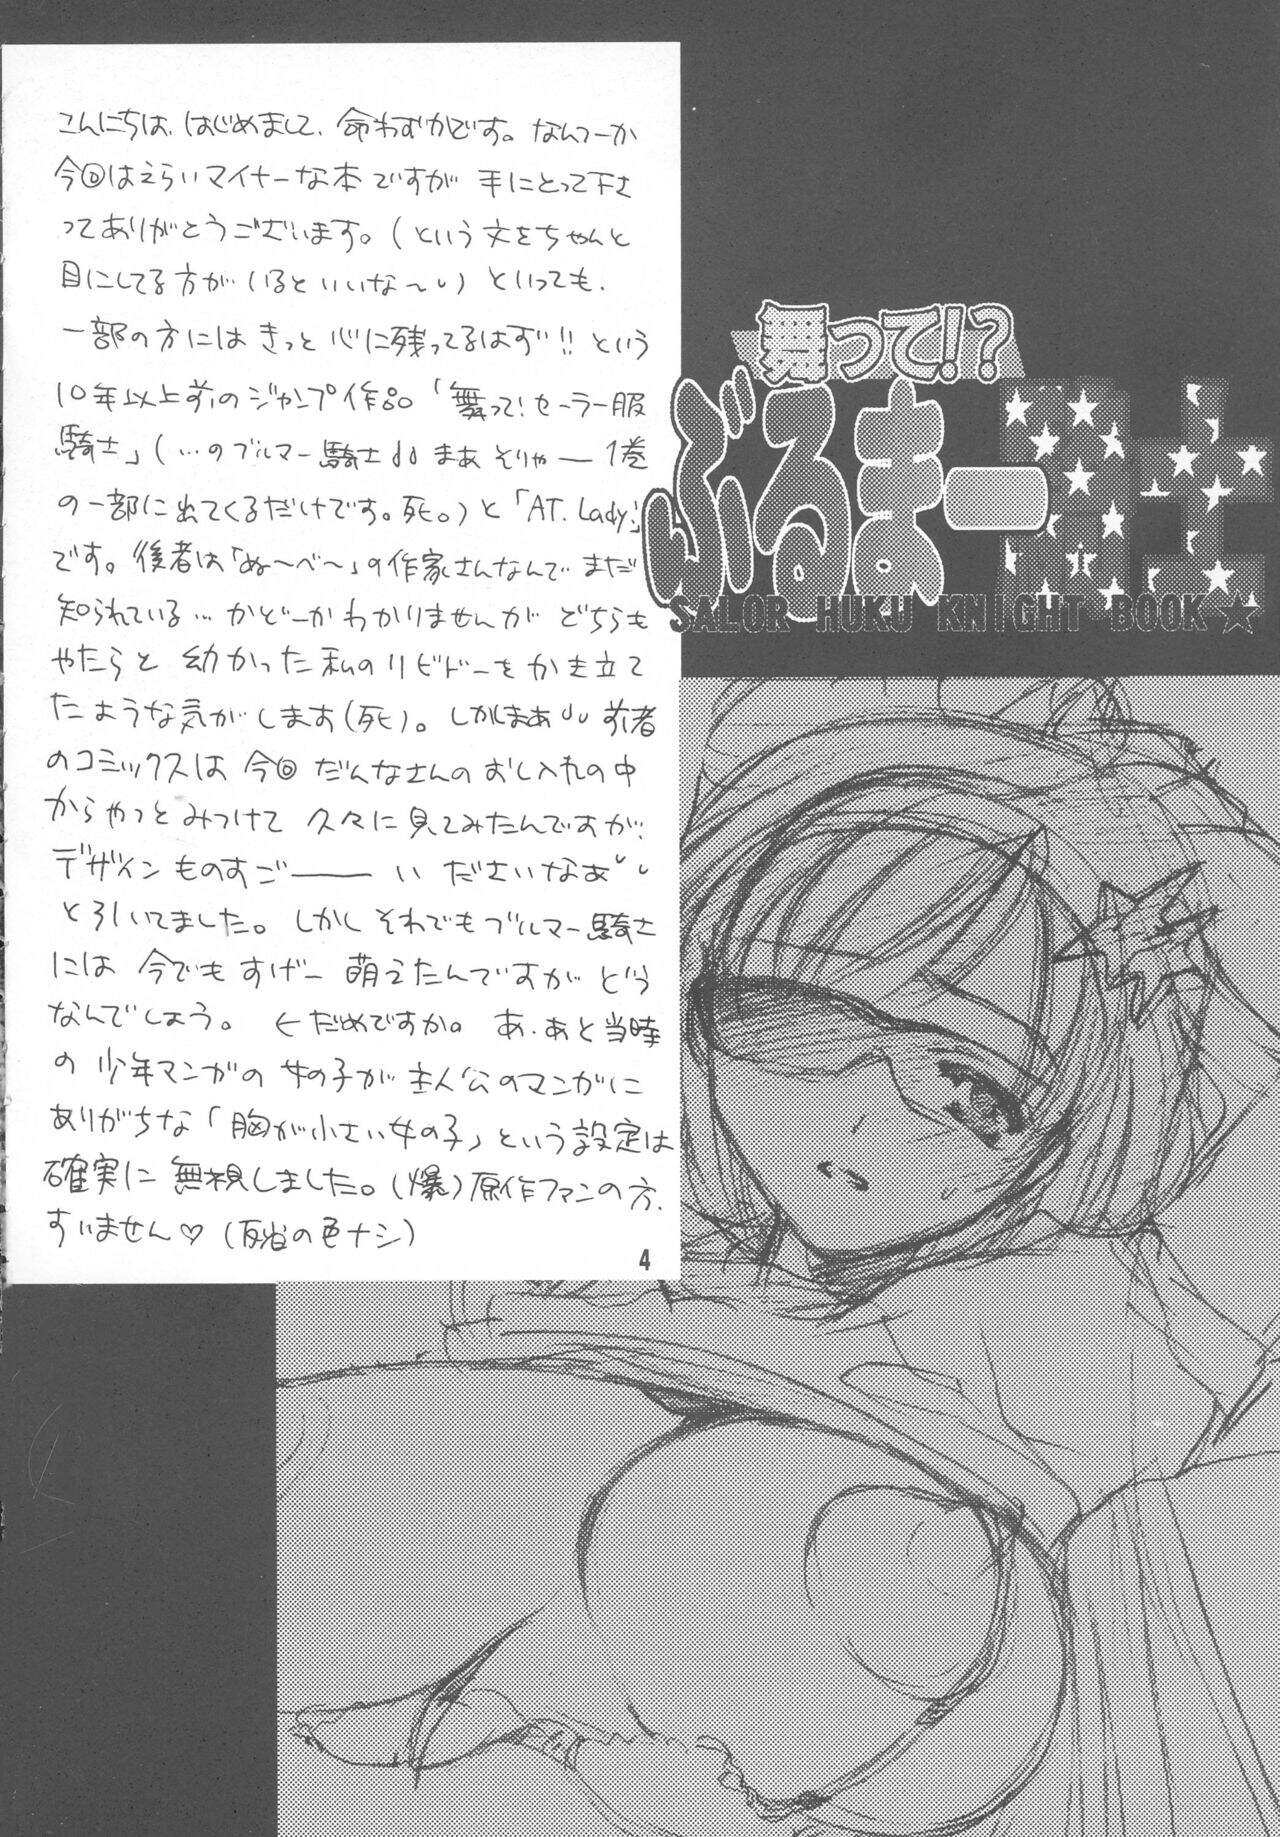 こんにちは、はじめまして、命わずかです。なんつーか
今回はえらいマイナーな本ですが 手にとって下さ
ってありがとうございます。(という文をちゃんと
目にしてる方が、いるといいな〜) といっても、
一部の方には きっと 心に残ってるはず!! という
10年以上前のジャンプ作品「舞って!セーラー服
騎士」(…のブルマー騎士 まあ そりゃー 1巻
の一部に出てくるだけです。死。)と「AT. Lady!」
です。後者は「ぬ〜べ〜」の作家さんなんで まだ
知られている… かどーか わかりませんが どちらも
やたらと 幼かった 私の リビドーを かき立て
たような気がします(死)。しかしまあ 前者
のコミックスは 今回 だんなさんの おし入れの中
から やっと みつけて 久々に 見てみたんですが、
デザイン ものすごーーーい ださいなあ
と引いてました。しかし それでも ブルマー騎士
には 今でも すげー 萌えたんですが どう
なんでしょう。 ←だめですか。 あ、あと 当時
の 少年マンガの 女の子が 主人公のマンガに
ありがちな「胸が小さい女の子」という設定は
確実に 無視しました。(爆) 原作ファンの方、
すいません♡ (反省の色ナシ)
4
舞って!?
ぶるまー騎士
SALOR HUKU KNIGHT BOOK★